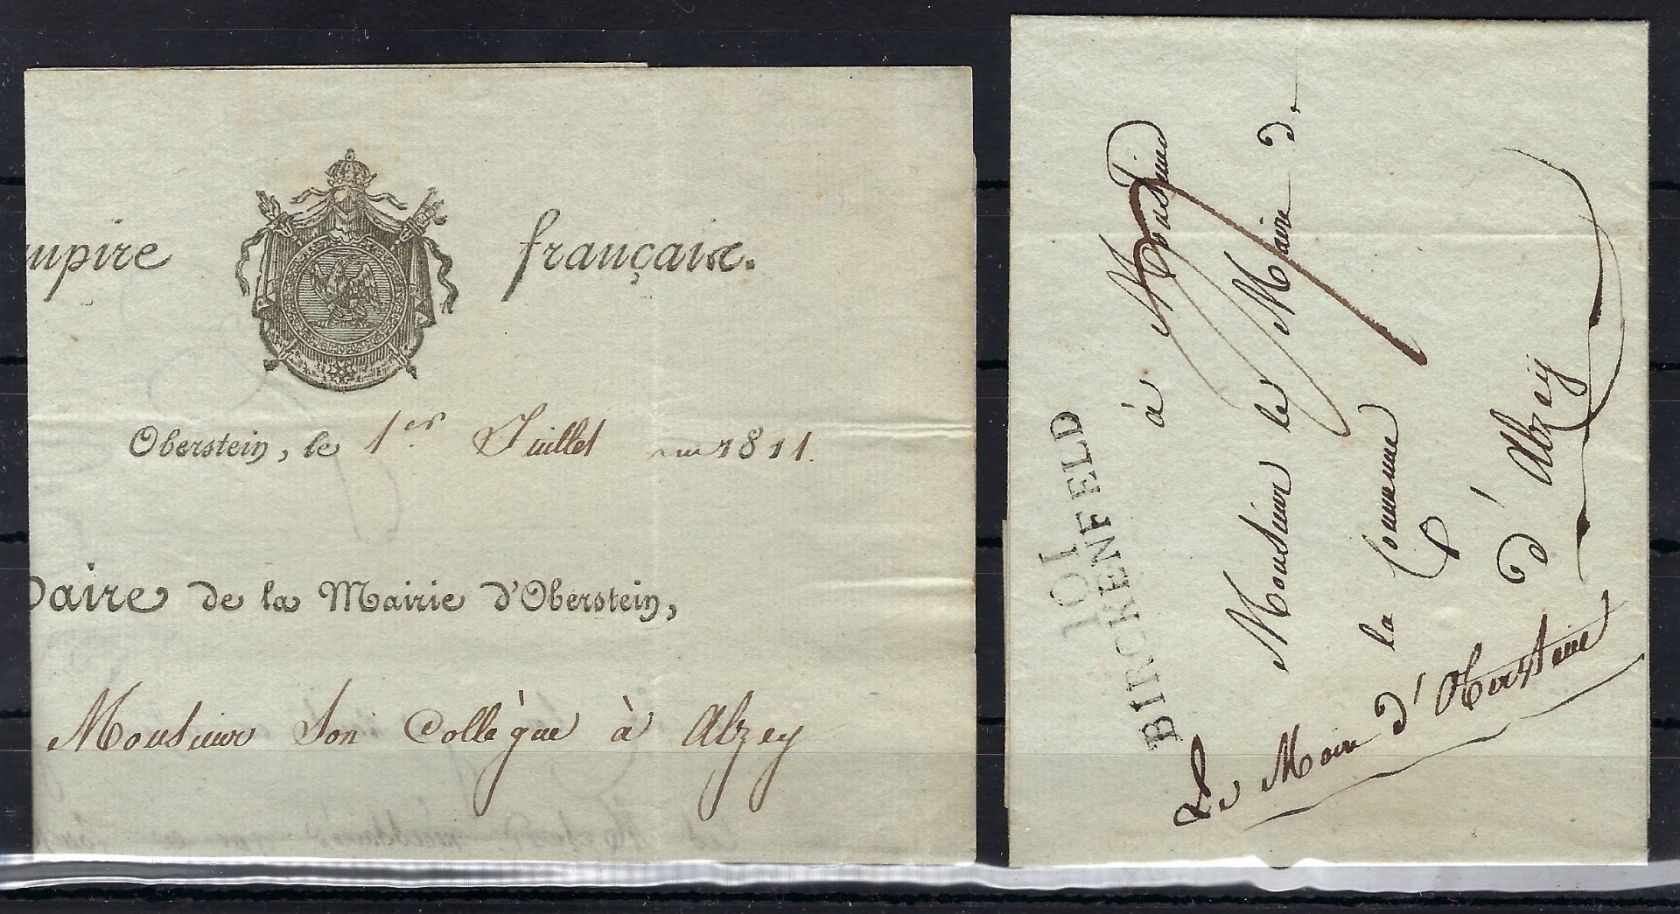 mpire française.
Oberstein, le 1er Juillet 1811.
Maire de la Mairie d'Oberstein,
Monsieur Son Collègue à Alzey
101
BIRCKENFELD
à Monsieur
Monsieur le Maire de
la Commune
d'Alzey
Le Maire d'Oberstein